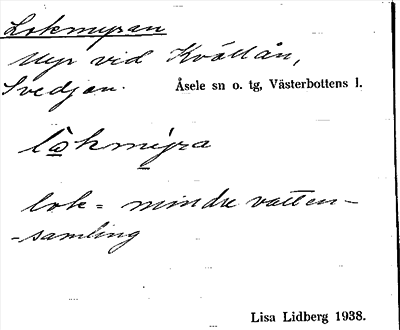 Lokmyran
Myr vid Kvällån,
Svedjan.
Åsele sn o. tg, Västerbottens l.
lokmyra
lok = mindre vatten-
-samling
Lisa Lidberg 1938.